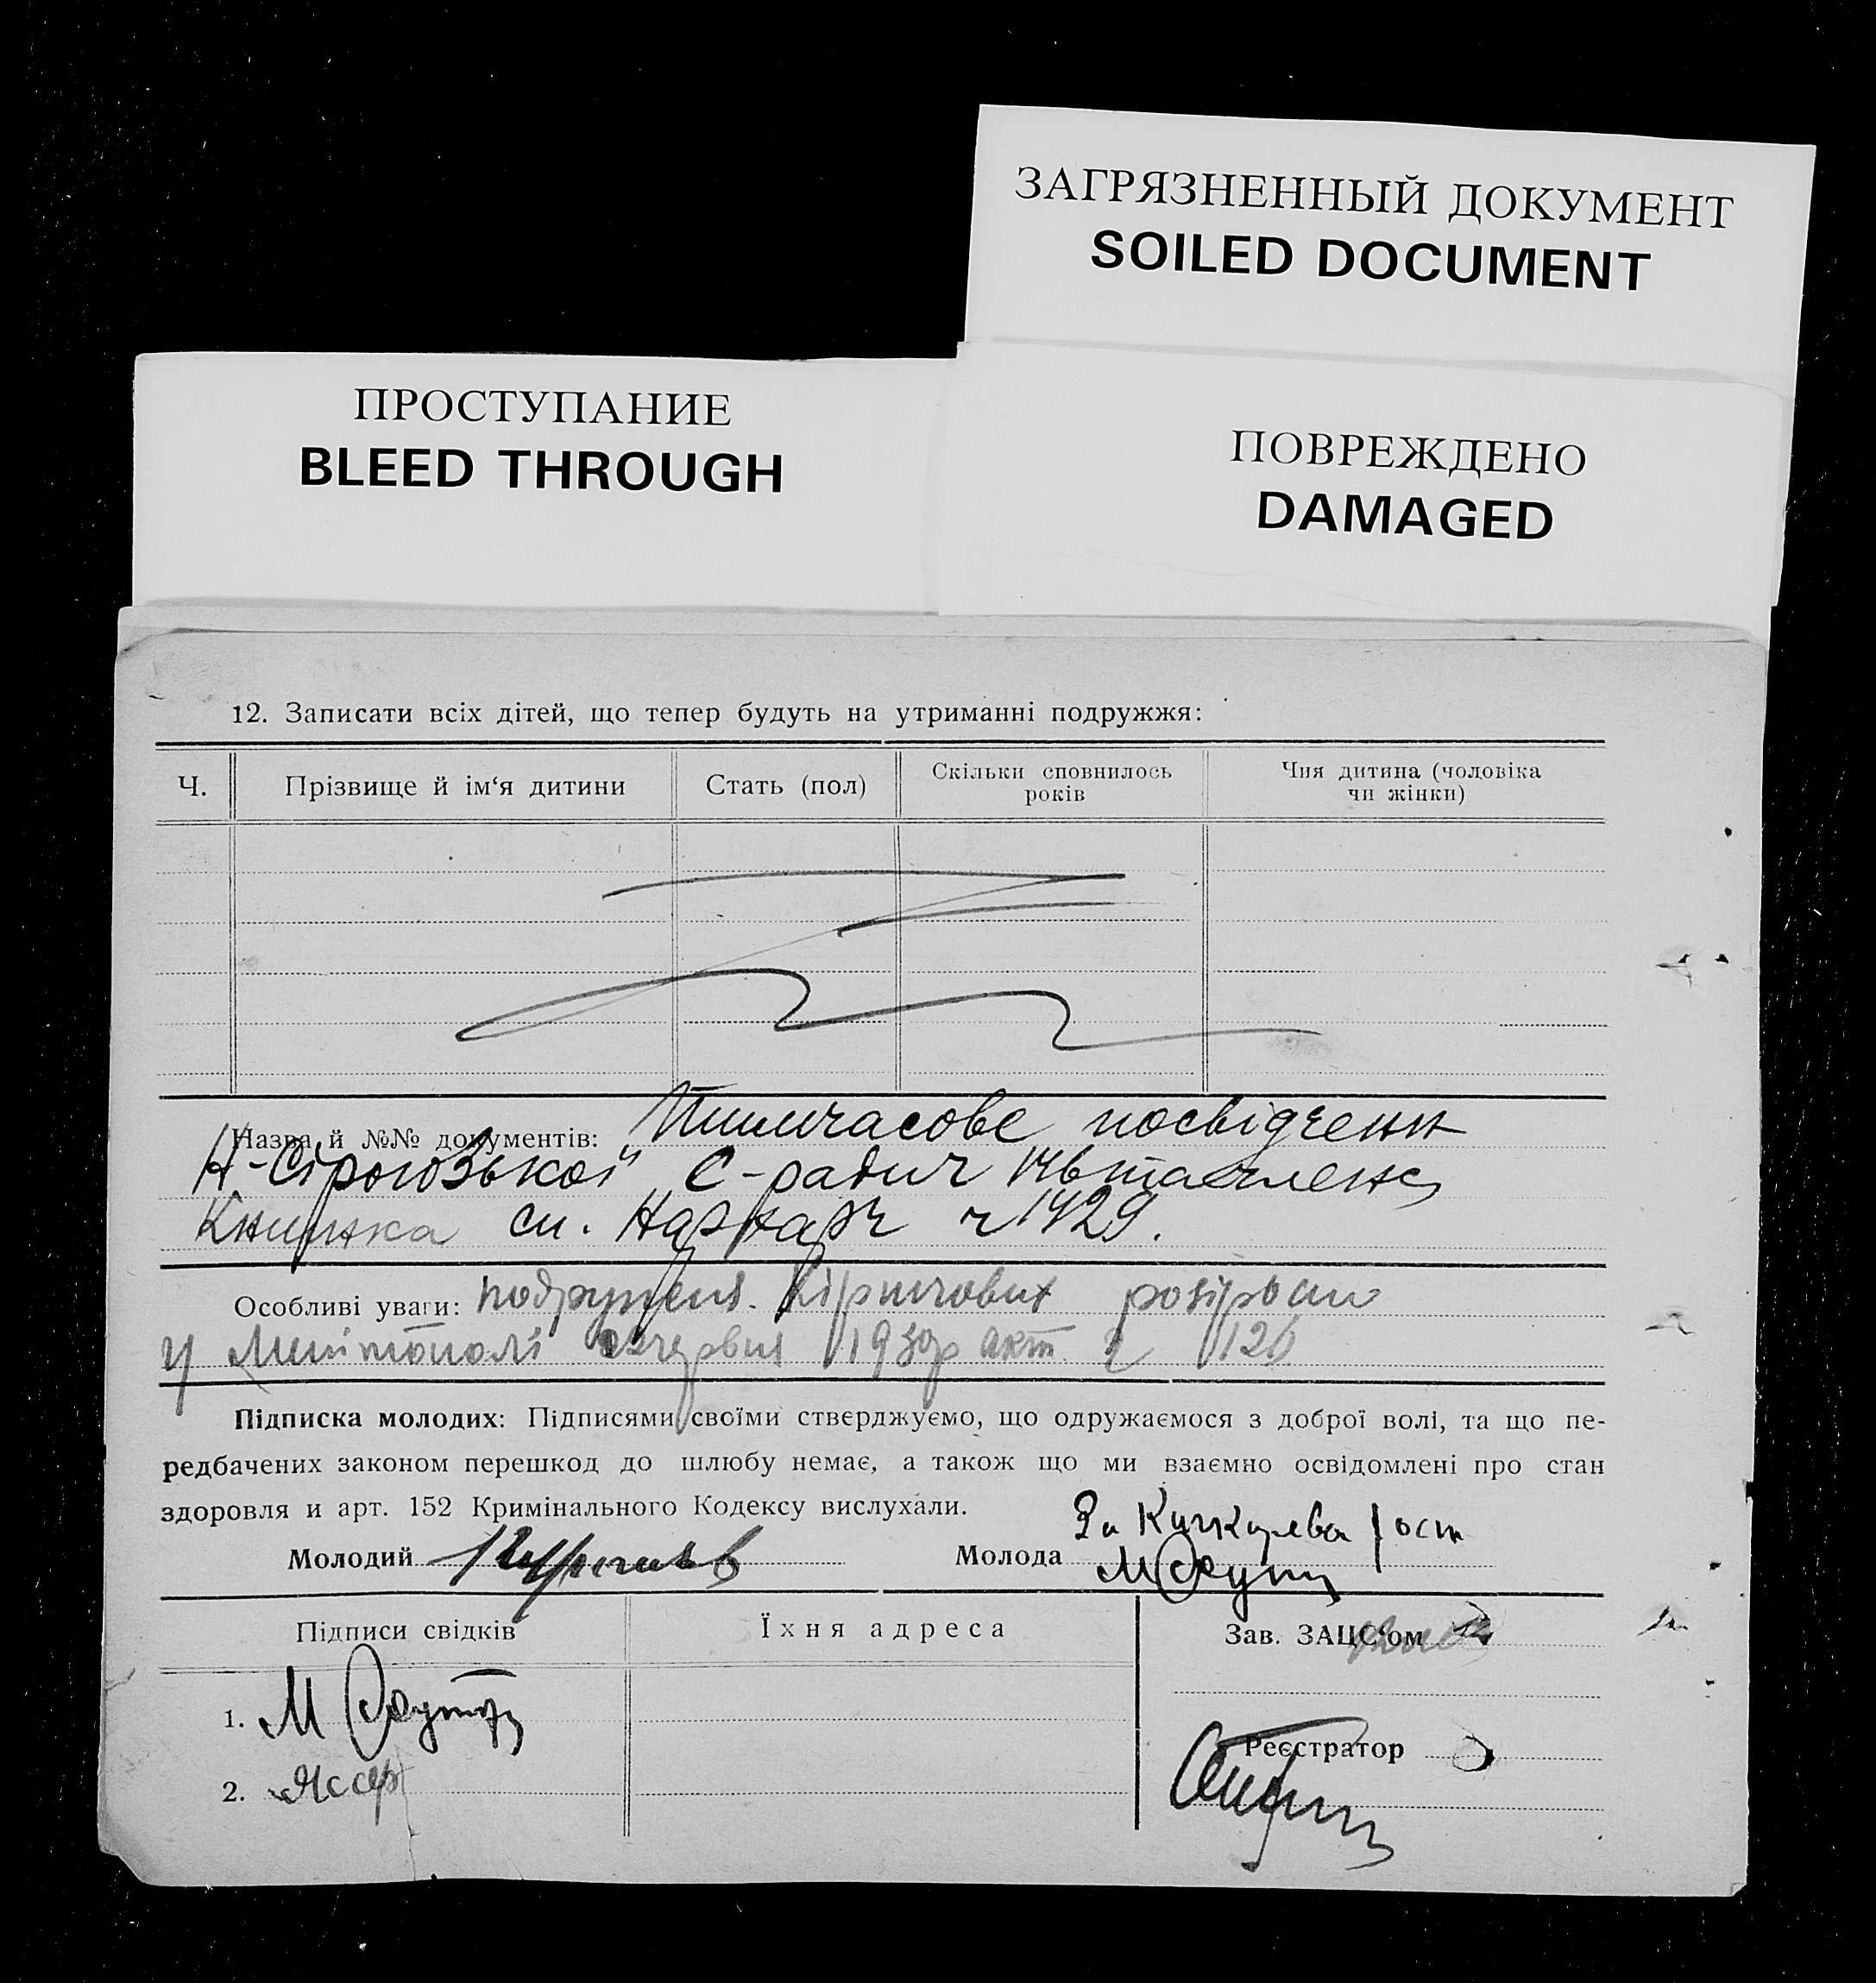 ЗАГРЯЗНЕННЫЙ ДОКУМЕНТ
SOILED DOCUMENT
ПРОСТУПАНИЕ
BLEED THROUGH
ПОВРЕЖДЕНО
DAMAGED
12. Записати всіх дітей, що тепер будуть на утриманні подружжя:
Ч.
Прізвище й ім‘я дитини
Стать (пол)
Скільки сповнилось
років
Чия дитина (чоловіка
чи жінки)
Назва й №№ документів: Тимчасове посвідченн
Н-Сірогозької С-ради ч
Книжка ч 1429.
Особливі уваги: розірвано
у Мелітополі червня акт ч 126
Підписка молодих: Підписями своїми стверджуємо, що одружаємося з доброї волі, та що пе-
редбачених законом перешкод до шлюбу немає, а також що ми взаємно освідомлені про стан
здоровля и арт. 152 Кримінального Кодексу вислухали.
За
Молодий
Молода
Підписи свідків
Їхня адреса
Зав. ЗАЦС‘ом
1. М
Реєстратор
2.